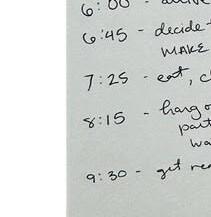 6:00 - arrive
6:45 - decide
MAKE
7:25 - eat, c
8:15 - hang o
part
wa
9:30 - get rea